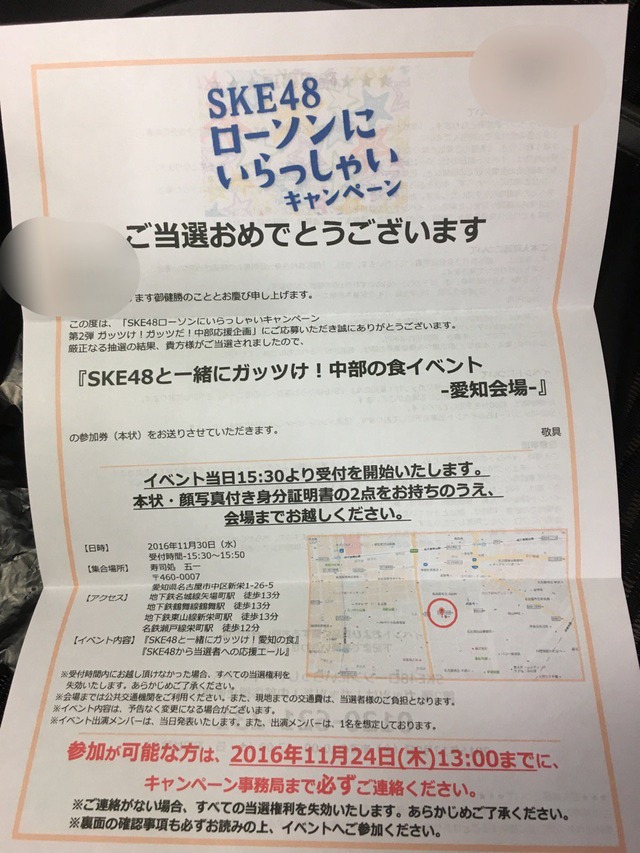 SKE48
ローソンに
いらっしゃい
キャンペーン
ご当選おめでとうございます
ます御健勝のこととお慶び申し上げます。
この度は、「SKE48ローソンにいらっしゃいキャンペーン
第2弾 ガッツけ！ガッツだ！中部応援企画」にご応募いただき誠にありがとうございます。
厳正なる抽選の結果、貴方様がご当選されましたので、
『SKE48と一緒にガッツけ！中部の食イベント
-愛知会場-』
の参加券（本状）をお送りさせていただきます。
敬具
イベント当日15:30より受付を開始いたします。
本状・顔写真付き身分証明書の2点をお持ちのうえ、
会場までお越しください。
【日時】 2016年11月30日（水）
受付時間-15:30～15:50
【集合場所】 寿司処 五一
〒460-0007
愛知県名古屋市中区新栄1-26-5
【アクセス】 地下鉄名城線矢場町駅 徒歩13分
地下鉄鶴舞線鶴舞駅 徒歩13分
地下鉄東山線新栄町駅 徒歩13分
名鉄瀬戸線栄町駅 徒歩12分
【イベント内容】 『SKE48と一緒にガッツけ！愛知の食』
『SKE48から当選者への応援エール』
※受付時間内にお越し頂けなかった場合、すべての当選権利を
失効いたします。あらかじめご了承ください。
※会場までは公共交通機関をご利用ください。また、現地までの交通費は、当選者様のご負担となります。
※イベント内容は、予告なく変更になる場合がございます。
※イベント出演メンバーは、当日発表いたします。また、出演メンバーは、1名を想定しております。
参加が可能な方は、2016年11月24日(木)13:00までに、
キャンペーン事務局まで必ずご連絡ください。
※ご連絡がない場合、すべての当選権利を失効いたします。あらかじめご了承ください。
※裏面の確認事項も必ずお読みの上、イベントへご参加ください。